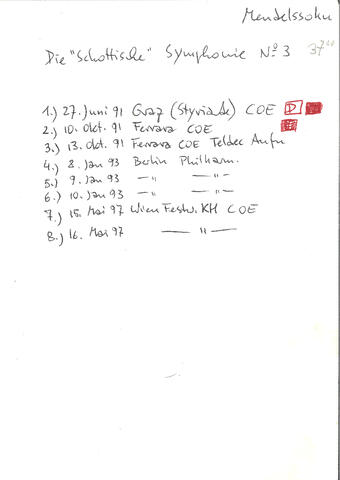 Mendelssohn
Die "Schottische" Symphonie No 3 37'20
1.) 27. Juni 91 Graz (Styriarte) COE D
2.) 10. Okt. 91 Ferrara COE
3.) 13. Okt. 91 Ferrara COE Teldec Aufn
4.) 8. Jan 93 Berlin Philharm.
5.) 9. Jan 93 — " — — " —
6.) 10. Jan 93 — " — — " —
7.) 15. Mai 97 Wien Festw. KH COE
8.) 16. Mai 97 — " —